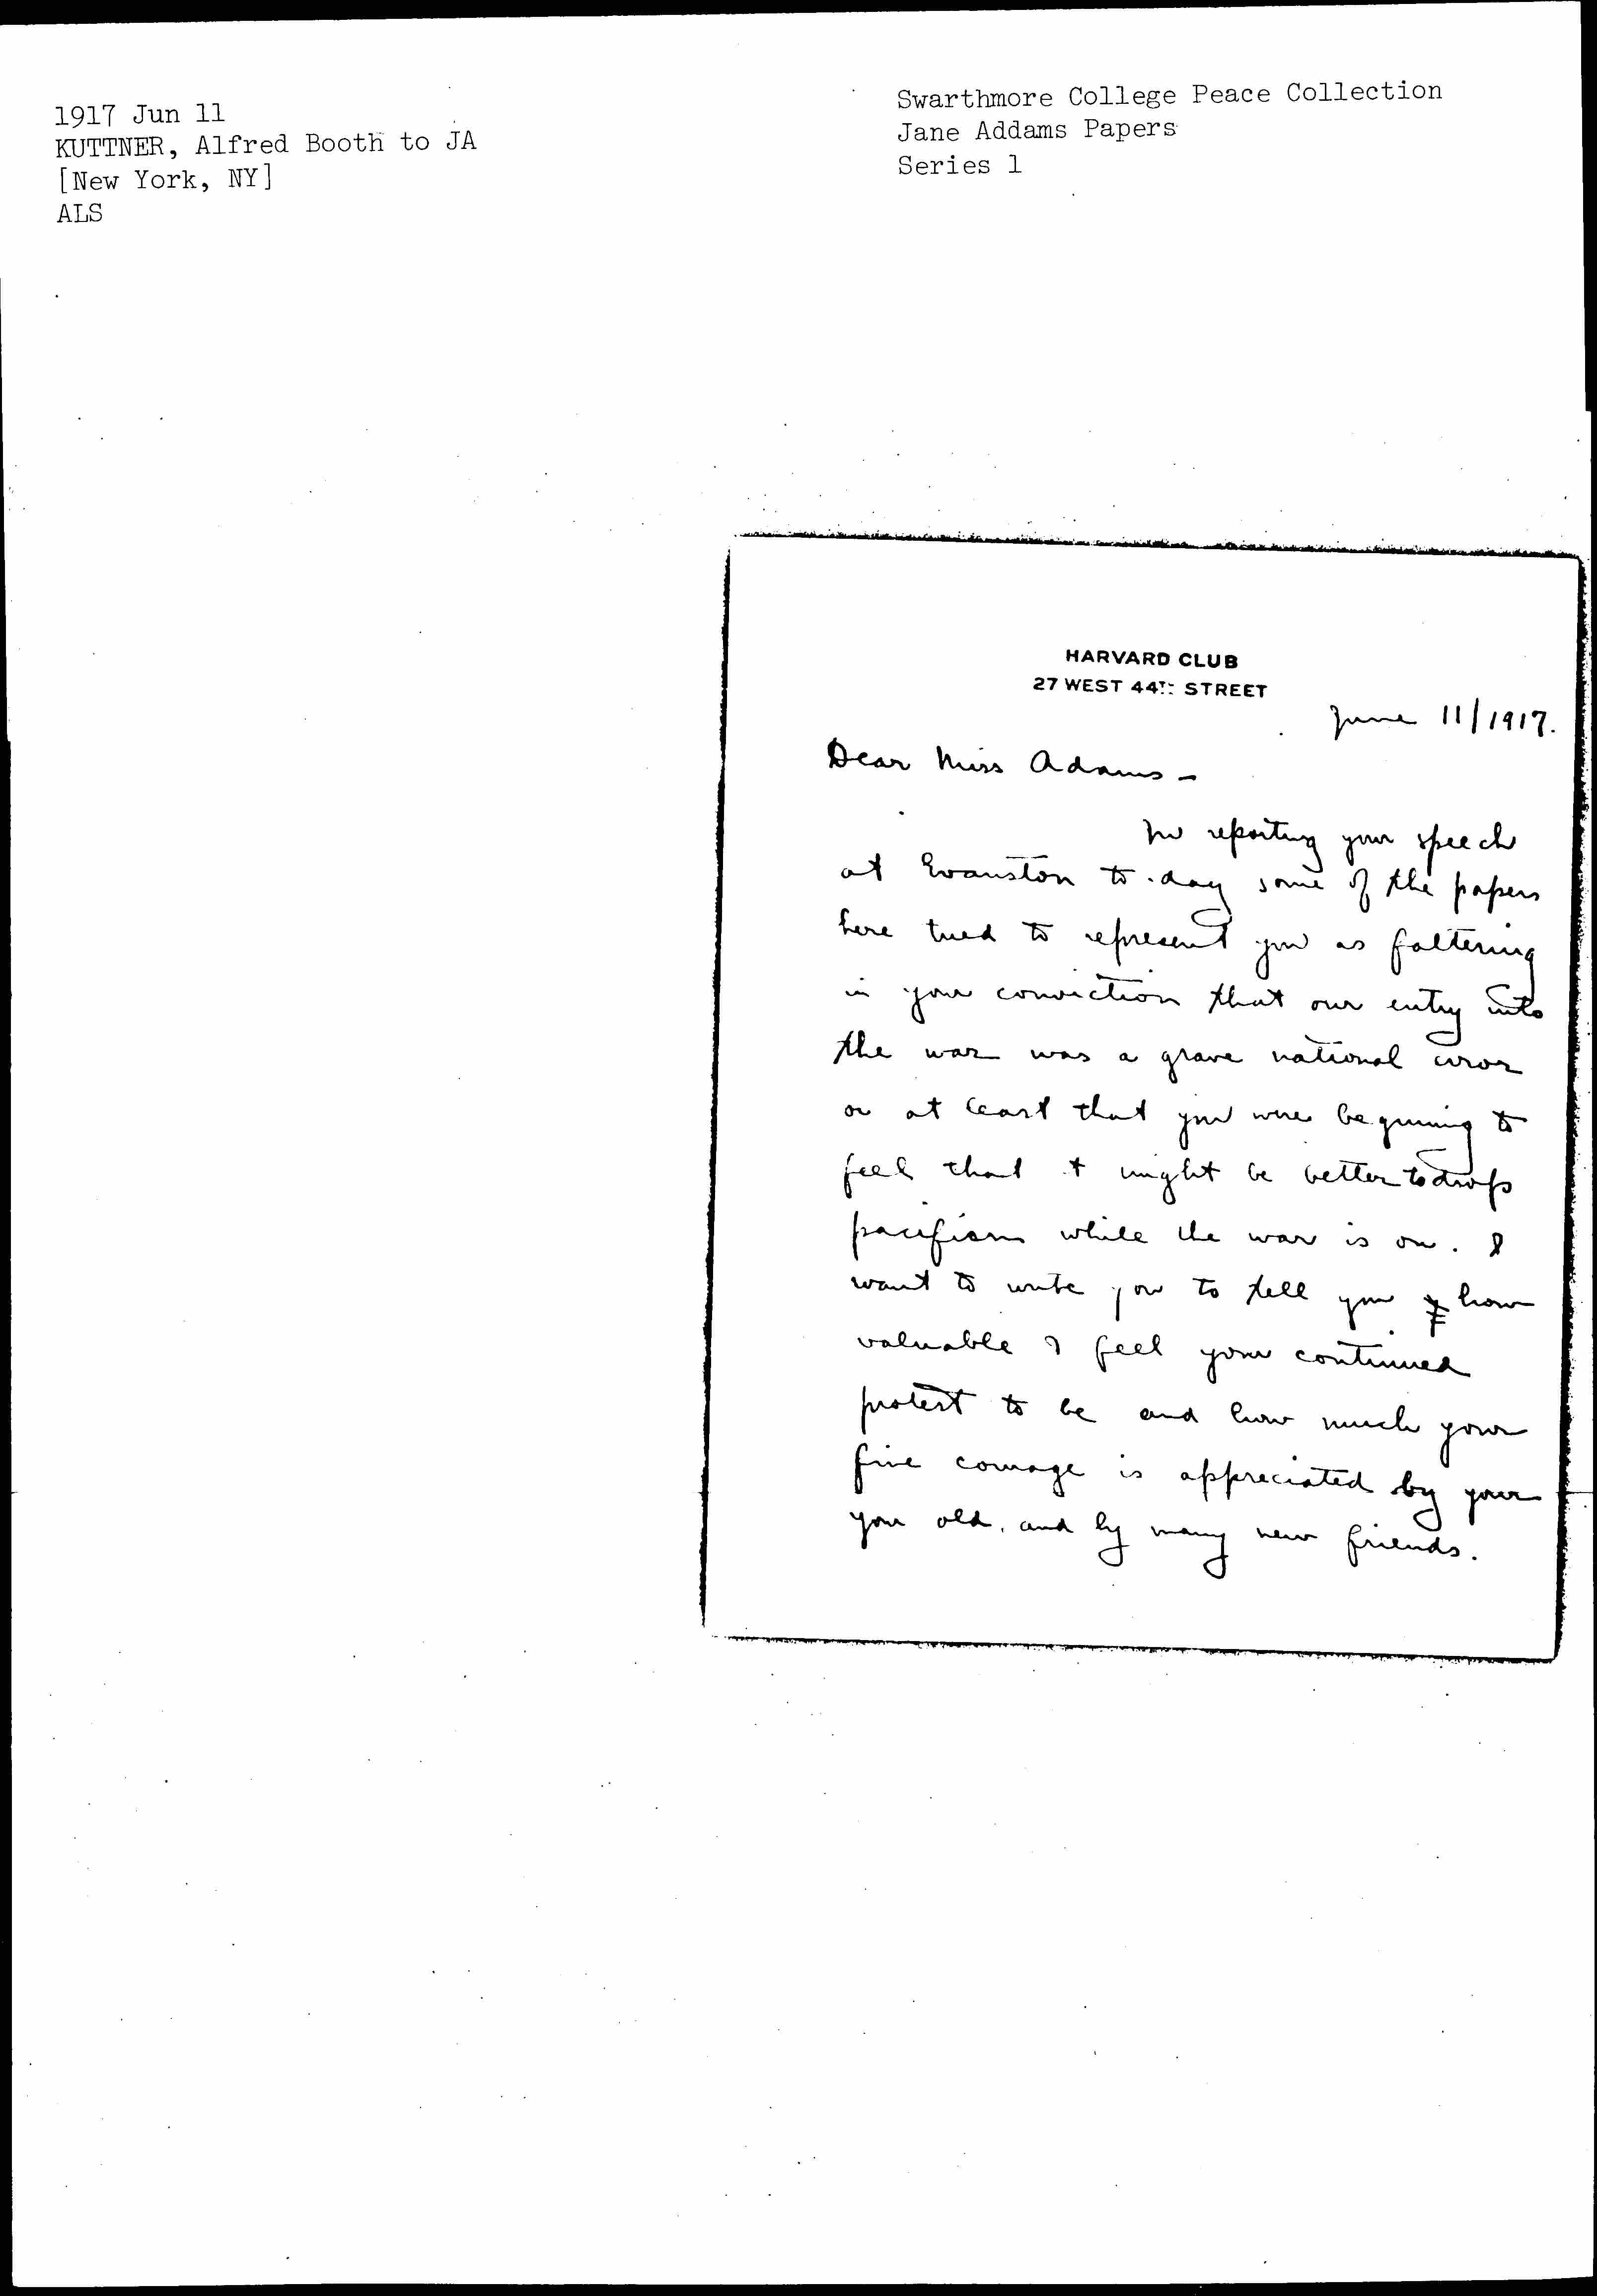 1917 Jun 11
KUTTNER, Alfred Booth to JA
[New York, NY]
ALS
Swarthmore College Peace Collection
Jane Addams Papers
Series 1
HARVARD CLUB
27 WEST 44TH STREET
June 11/1917.
Dear Miss Adams -
In reporting your speech
at Evanston to-day some of the papers
here tried to represent you as faltering
in your conviction that our entry into
the war was a grave national error
or at least that you were beginning to
feel that it might be better to drop
pacifism while the war is on. I
want to write you to tell you how
valuable I feel your continued
protest to be and how much your
fine courage is appreciated by your
your old, and by many new friends.